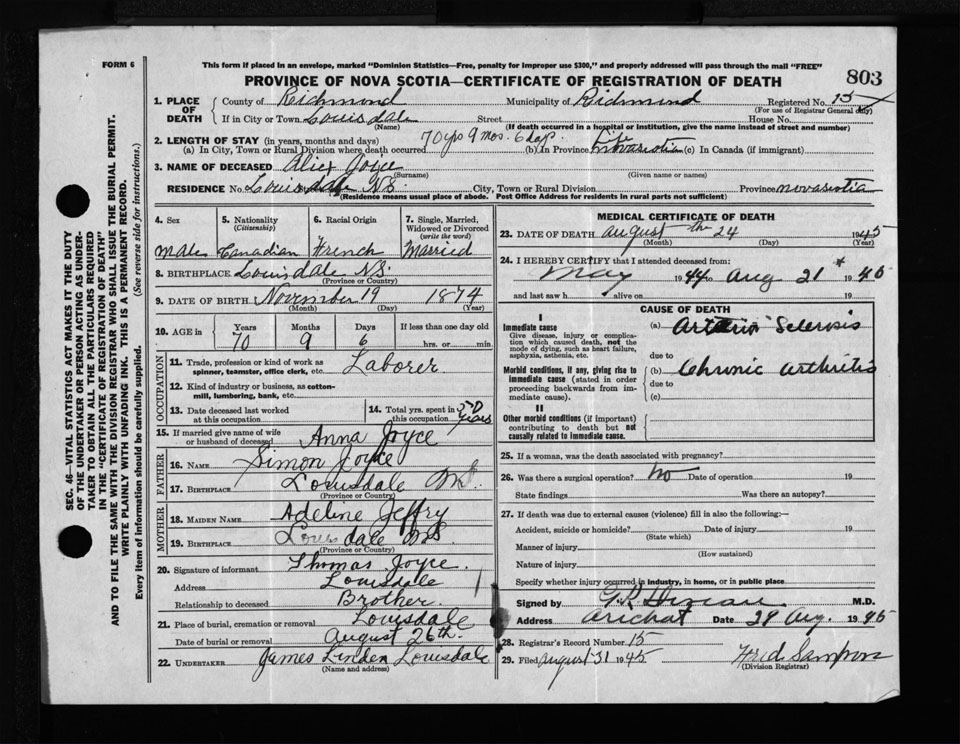 FORM 6
This form if placed in an envelope, marked "Dominion Statistics—Free, penalty for improper use $300," and properly addressed will pass through the mail "FREE"
PROVINCE OF NOVA SCOTIA—CERTIFICATE OF REGISTRATION OF DEATH
803
SEC. 46—VITAL STATISTICS ACT MAKES IT THE DUTY
OF THE UNDERTAKER OR PERSON ACTING AS UNDER-
TAKER TO OBTAIN ALL THE PARTICULARS REQUIRED
IN THE "CERTIFICATE OF REGISTRATION OF DEATH"
AND TO FILE THE SAME WITH THE DIVISION REGISTRAR WHO SHALL ISSUE THE BURIAL PERMIT.
WRITE PLAINLY WITH UNFADING INK. THIS IS A PERMANENT RECORD.
Every item of information should be carefully supplied. (See reverse side for instructions.)
1. PLACE OF DEATH
County of Richmond Municipality of Richmond Registered No. 15
(For use of Registrar General only)
If in City or Town Louisdale Street House No.
(Name) (If death occurred in a hospital or institution, give the name instead of street and number)
2. LENGTH OF STAY (in years, months and days) 70 yrs 9 mos. 6 days Life
(a) In City, Town or Rural Division where death occurred (b) In Province Novascotia (c) In Canada (if immigrant)
3. NAME OF DECEASED Alix Joyce
(Surname) (Given name or names)
RESIDENCE No. Louisdale N.S. City, Town or Rural Division Province novascotia
(Residence means usual place of abode. Post Office Address for residents in rural parts not sufficient)
4. Sex
5. Nationality (Citizenship)
6. Racial Origin
7. Single, Married, Widowed or Divorced (write the word)
Male Canadian French Married
8. BIRTHPLACE Louisdale N.S.
(Province or Country)
9. DATE OF BIRTH November 19 1874
(Month) (Day) (Year)
10. AGE IN Years Months Days If less than one day old
70 9 6 hrs. or min.
OCCUPATION
11. Trade, profession or kind of work as spinner, teamster, office clerk, etc. Laborer
12. Kind of industry or business, as cotton-mill, lumbering, bank, etc.
13. Date deceased last worked at this occupation
14. Total yrs. spent in this occupation 50 years
15. If married give name of wife or husband of deceased Anna Joyce
FATHER
16. NAME Simon Joyce
17. BIRTHPLACE Louisdale N.S.
(Province or Country)
MOTHER
18. MAIDEN NAME Adeline Jeffry
19. BIRTHPLACE Louisdale N.S.
(Province or Country)
20. Signature of informant Thomas Joyce.
Address Louisdale
Relationship to deceased Brother.
21. Place of burial, cremation or removal Louisdale
Date of burial or removal August 26th.
22. UNDERTAKER James Linden Louisdale
(Name and address)
MEDICAL CERTIFICATE OF DEATH
23. DATE OF DEATH August the 24 1945
(Month) (Day) (Year)
24. I HEREBY CERTIFY that I attended deceased from:
May 1944 to Aug 21 * 1945
and last saw h alive on 19
CAUSE OF DEATH
I
Immediate cause
Give disease, injury or complication which caused death, not the mode of dying, such as heart failure, asphyxia, asthenia, etc.
(a) Arterio Sclerosis
due to
Morbid conditions, if any, giving rise to immediate cause (stated in order proceeding backwards from immediate cause).
(b) Chronic arthritis
due to
(c)
II
Other morbid conditions (if important) contributing to death but not causally related to immediate cause.
25. If a woman, was the death associated with pregnancy?
26. Was there a surgical operation? No Date of operation 19
State findings Was there an autopsy?
27. If death was due to external causes (violence) fill in also the following:—
Accident, suicide or homicide? Date of injury 19
(State which)
Manner of injury
(How sustained)
Nature of injury
Specify whether injury occurred in industry, in home, or in public place
Signed by G.R. M.D.
Address Arichat Date 29 Aug. 1945
28. Registrar's Record Number 15
29. Filed August 31 1945 Fred Sampson
(Division Registrar)